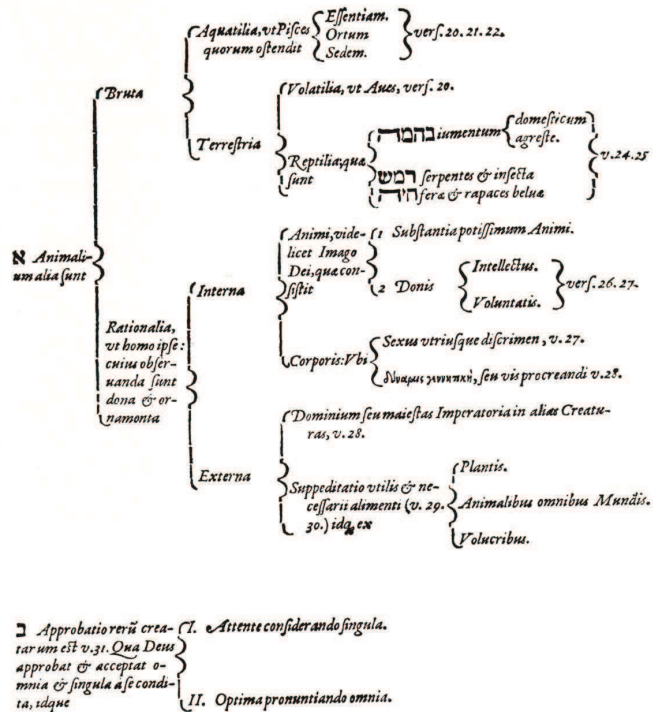 Aquatilia, vt Pisces
quorum ostendit
Essentiam.
Ortum
Sedem.
vers. 20. 21. 22.
Bruta
Terrestria
Volatilia, vt Aues, vers. 20.
Reptilia, quæ
sunt
בהמה iumentum
domesticum
agreste.
רמש serpentes & insecta
חיה feræ & rapaces beluæ
v. 24. 25
א Animali-
um alia sunt
Rationalia,
vt homo ipse:
cuius obser-
uanda sunt
dona & or-
namonta
Interna
Animi, vide-
licet Imago
Dei, quæ con-
sistit
1 Substantia potissimum Animi.
2 Donis
Intellectus.
Voluntatis.
vers. 26. 27.
Corporis: Vbi
Sexus vtriusque discrimen, v. 27.
δύναμις γεννητικὴ, seu vis procreandi v. 28.
Externa
Dominium seu maiestas Imperatoria in alias Creatu-
ras, v. 28.
Suppeditatio vtilis & ne-
cessarii alimenti (v. 29.
30.) idq; ex
Plantis.
Animalibus omnibus Mundis.
Volucribus.
ב Approbatio rerũ crea-
tarum est v. 31. Qua Deus
approbat & acceptat o-
mnia & singula a se condi-
ta, idque
I. Attente considerando singula.
II. Optima pronuntiando omnia.